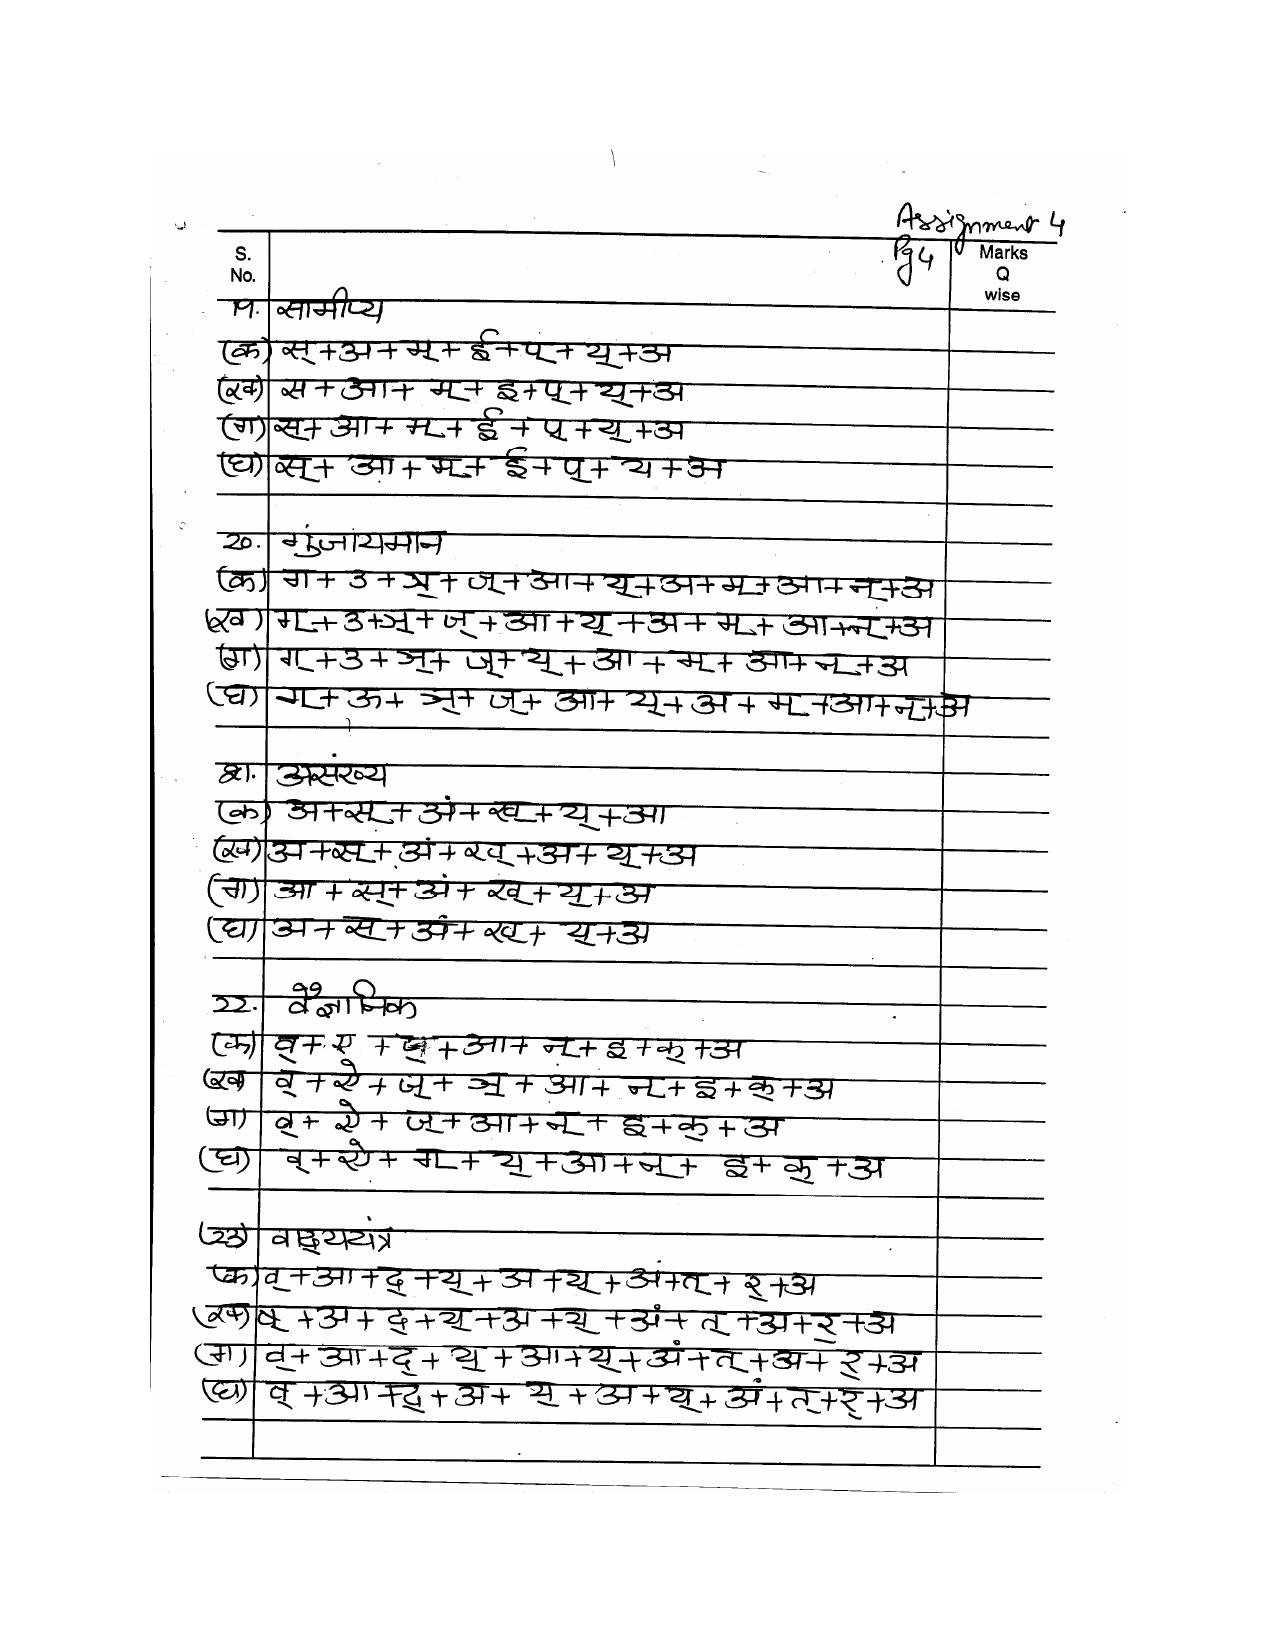 Assignment 4
Pg 4
S. No.
Marks Q wise
१९. सामीप्य
(क) स्+अ+म्+ई+प्+य्+अ
(ख) स+आ+म्+इ+प्+य्+अ
(ग) स्+आ+म्+ई+प्+य्+अ
(घ) स्+आ+म्+ई+प्+य+अ
२०. गुंजायमान
(क) ग+उ+ञ्+ज्+आ+य्+अ+म्+आ+न्+अ
(ख) ग्+उ+ञ्+ज्+आ+य्+अ+म्+आ+न्+अ
(ग) ग्+उ+ञ्+ज्+य्+आ+म्+आ+न्+अ
(घ) ग्+ऊ+ञ्+ज्+आ+य्+अ+म्+आ+न्+अ
२१. असंख्य
(क) अ+स्+अं+ख्+य्+आ
(ख) अ+स्+अं+ख्+अ+य्+अ
(ग) आ+स्+अं+ख्+य्+अ
(घ) अ+स्+अं+ख्+य्+अ
२२. वैज्ञानिक
(क) व्+ए+ +आ+न्+इ+क्+अ
(ख) व्+ऐ+ज्+ञ्+आ+न्+इ+क्+अ
(ग) व्+ऐ+ज्+आ+न्+इ+क्+अ
(घ) व्+ऐ+ग्+य्+आ+न्+इ+क्+अ
(२३) वाद्ययंत्र
(क) व्+आ+द्+य्+अ+य्+अं+त्+र्+अ
(ख) व्+अ+द्+य्+अ+य्+अं+त्+अ+र्+अ
(ग) व्+आ+द्+य्+आ+य्+अं+त्+अ+र्+अ
(घ) व्+आ+द्+अ+य्+अ+य्+अं+त्+र्+अ